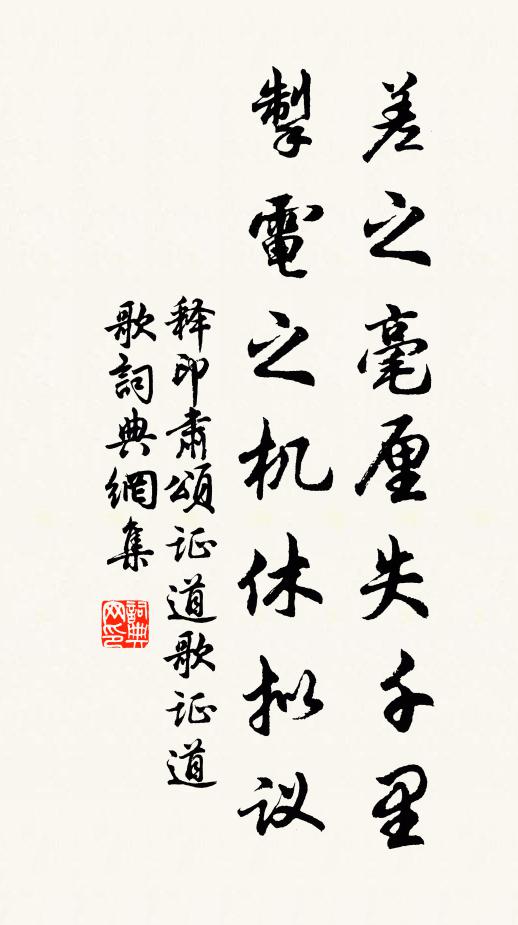 差之毫厘失千里
掣電之机休拟议
释印肃頌证道歌证道
歌詞典網集
詞典网印